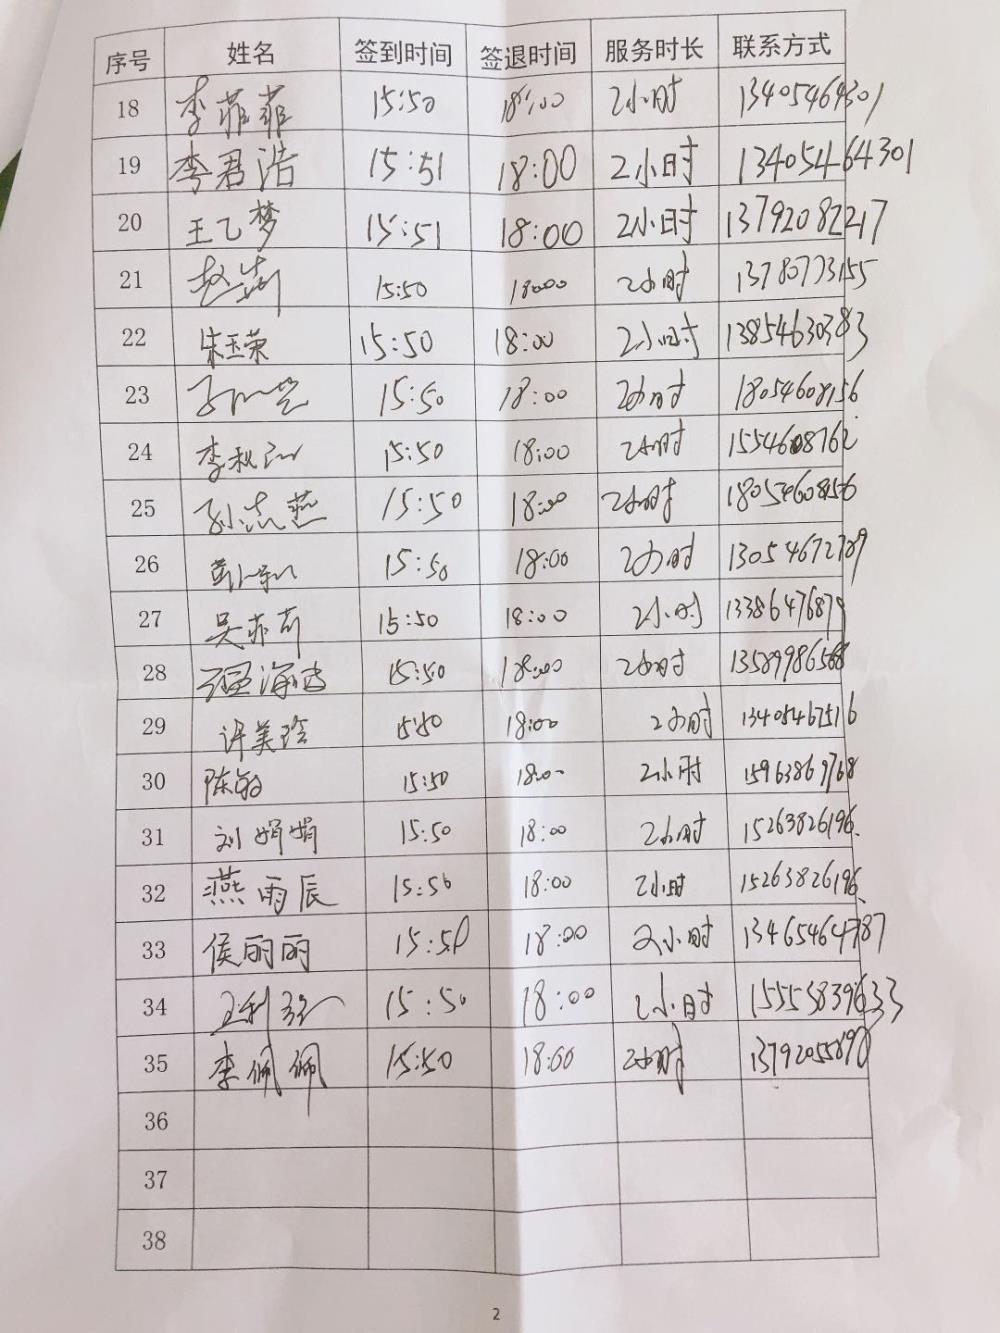 序号 姓名 签到时间 签退时间 服务时长 联系方式
18 李菲菲 15:50 18:00 2小时 13405464301
19 李君浩 15:51 18:00 2小时 13405464301
20 王乙梦 15:51 18:00 2小时 13792082217
21 15:50 18:00 2小时 13780773155
22 宋玉荣 15:50 18:00 2小时 13854630383
23 15:50 18:00 2小时 18054608156
24 15:50 18:00 2小时 1554608762
25 15:50 18:00 2小时 18054608156
26 15:50 18:00 2小时 13054672789
27 15:50 18:00 2小时 13386476879
28 15:50 18:00 2小时 13589986568
29 许美玲 15:50 18:00 2小时 13405467516
30 陈敏 15:50 18:00 2小时 15963869768
31 刘娟娟 15:50 18:00 2小时 15263826196
32 燕雨辰 15:50 18:00 2小时 15263826196
33 侯丽丽 15:50 18:00 2小时 13465464787
34 15:50 18:00 2小时 15553839633
35 李佩佩 15:50 18:00 2小时 13792055890
36
37
38
2